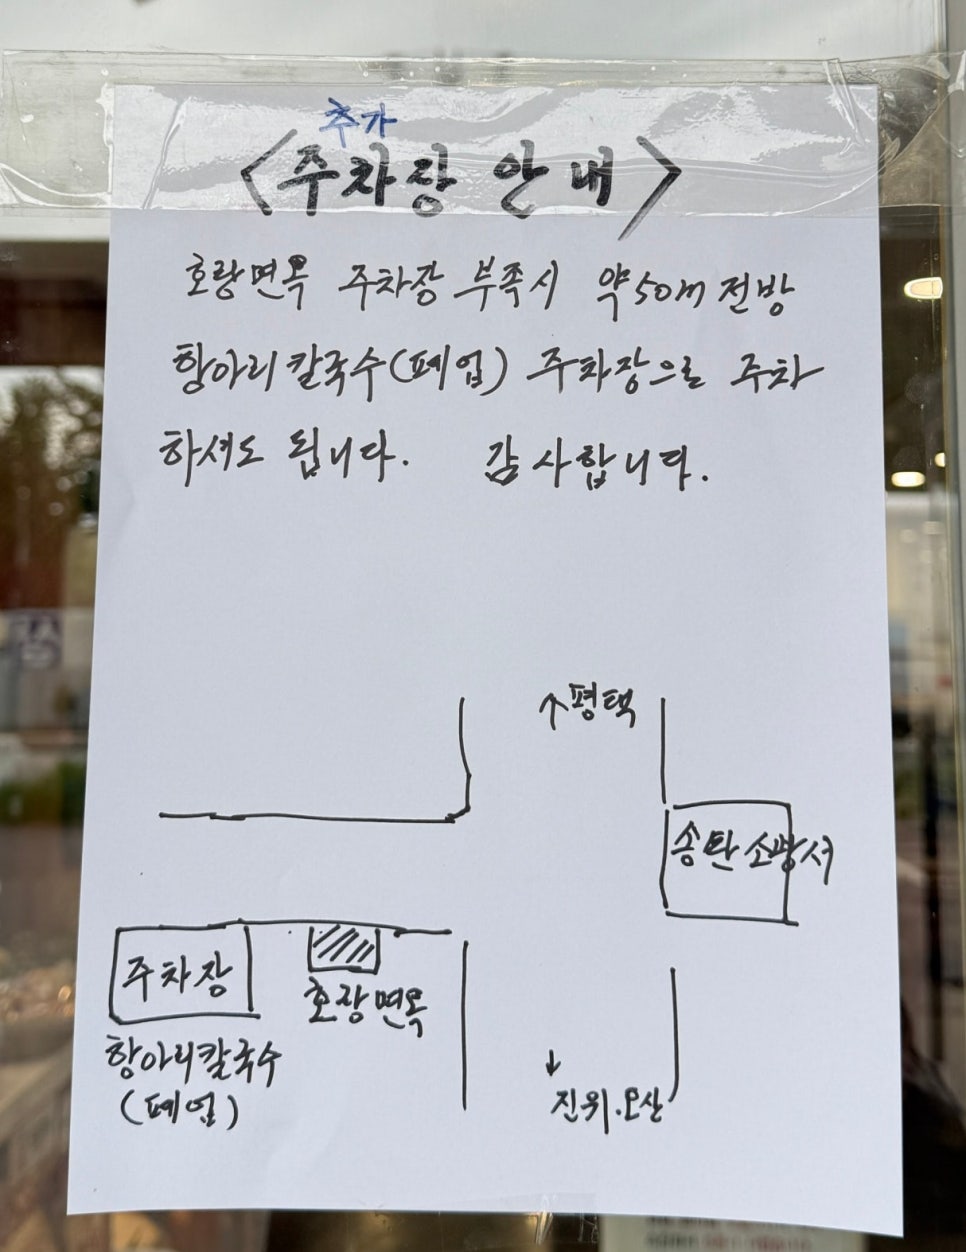 추가
<주차장 안내>
호랑면옥 주차장 부족시 약50m전방
항아리칼국수(폐업) 주차장으로 주차
하셔도 됩니다. 감사합니다.
↑평택
송탄소방서
주차장
호랑면옥
항아리칼국수
(폐업)
↓
진위.오산